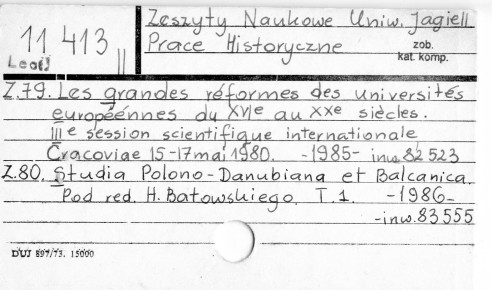 Zeszyty Naukowe Uniw. Jagiell
11 413 II
Prace Historyczne
zob.
kat. komp.
Z.79. Les grandes réformes des universités
européennes du XVIe au XXe siècles.
IIIe session scientifique internationale
Cracoviae 15-17 mai 1980. -1985- inw. 82 523
Z.80. Studia Polono-Danubiana et Balcanica.
Pod red. H. Batowskiego. T.1. -1986-
-inw. 83 555
DUJ 897/73. 15000